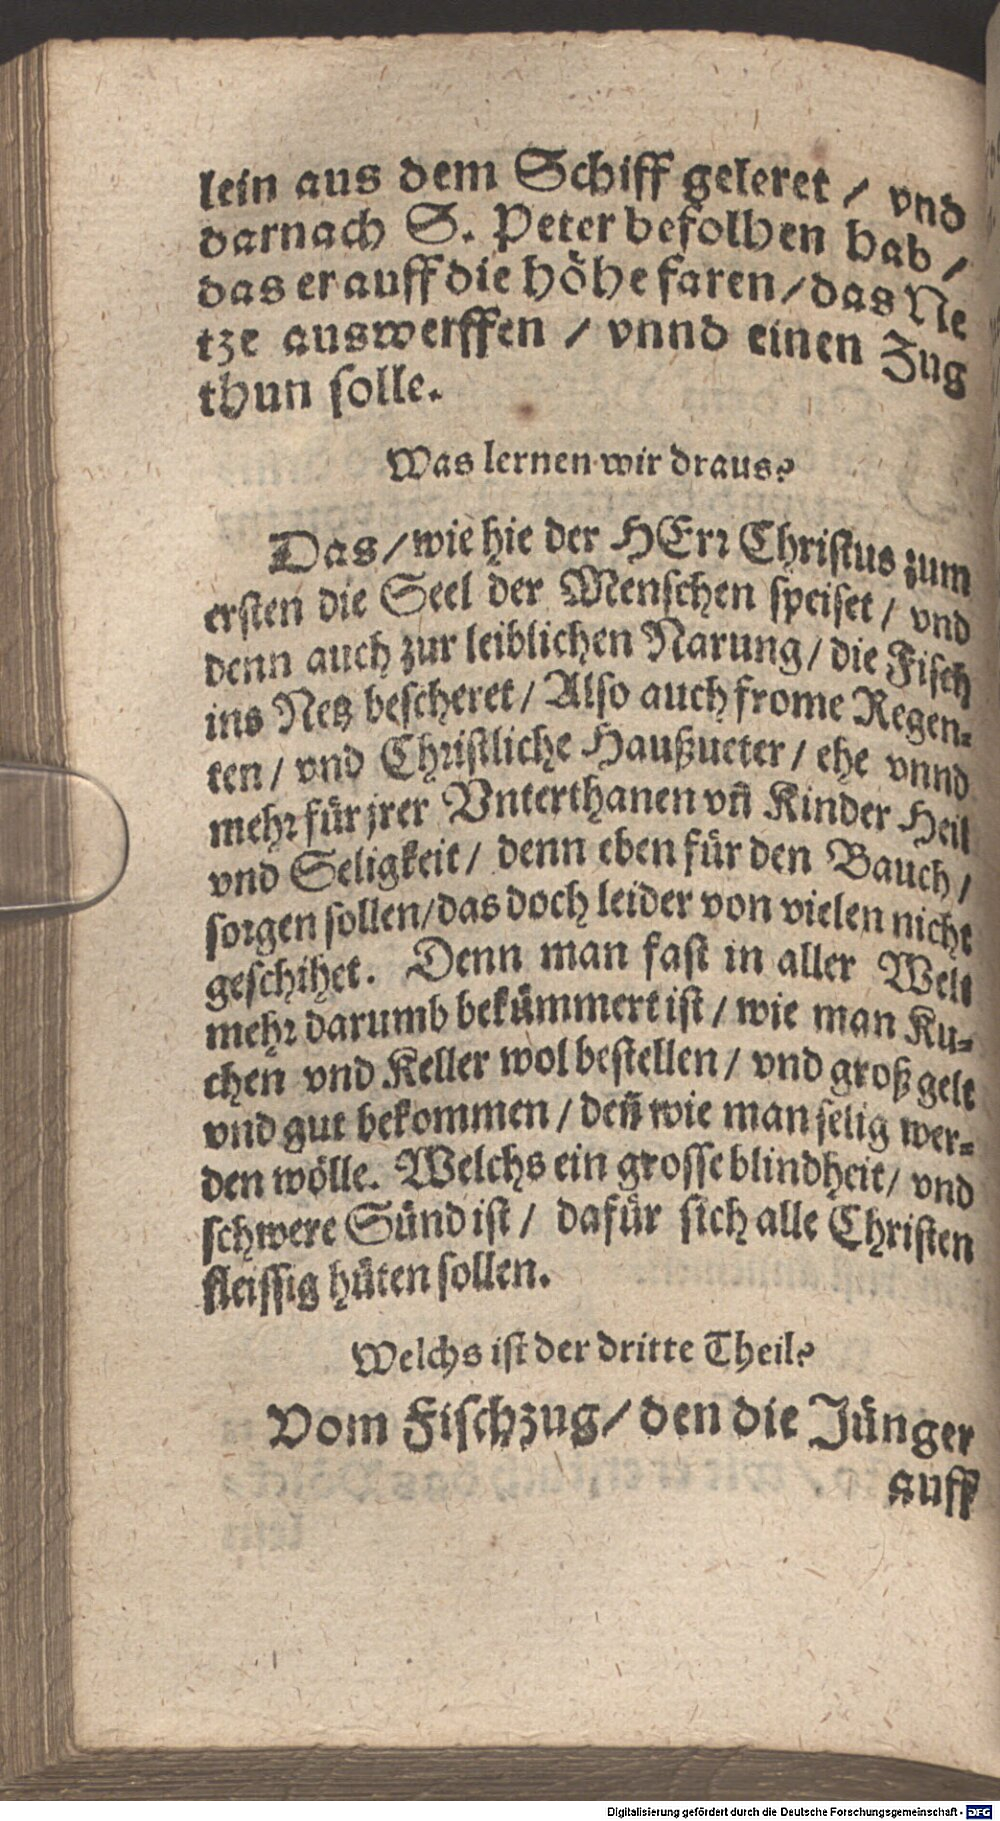 lein aus dem Schiff geleret / vnd
darnach S. Peter befolhen hab /
das er auff die höhe faren / das Ne
tze auswerffen / vnnd einen Zug
thun solle.
Was lernen wir draus?
Das / wie hie der HErr Christus zum
ersten die Seel der Menschen speiset / vnd
denn auch zur leiblichen Narung / die Fisch
ins Netz bescheret / Also auch frome Regen-
ten / vnd Christliche Haußueter / ehe vnnd
mehr für jrer Vnterthanen vn̄ Kinder Heil
vnd Seligkeit / denn eben für den Bauch /
sorgen sollen / das doch leider von vielen nicht
geschihet. Denn man fast in aller Welt
mehr darumb bekümmert ist / wie man Ku-
chen vnd Keller wol bestellen / vnd groß gelt
vnd gut bekommen / den̄ wie man selig wer-
den wölle. Welchs ein grosse blindheit / vnd
schwere Sünd ist / dafür sich alle Christen
fleissig hüten sollen.
Welchs ist der dritte Theil?
Vom Fischzug / den die Jünger
auff
Digitalisierung gefördert durch die Deutsche Forschungsgemeinschaft - DFG